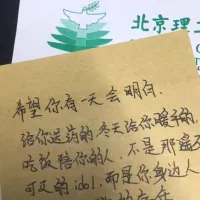 北京理
希望你有一天会明白,
给你送药的,冬天给你暖手的,
吃饭陪你的人,不是那遥不
可及的idol,而是你身边人